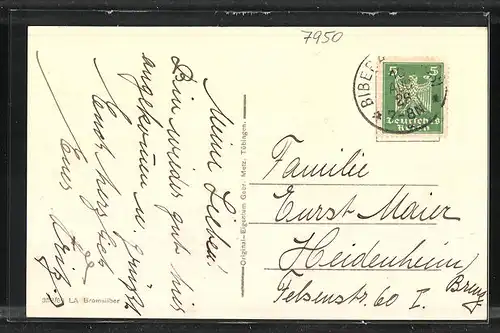 7950
Meine Lieben!
Bin wieder gut hier
angekommen u. grüßt
Euch herzlich
Euer
Original-Eigentum Gebr. Metz, Tübingen.
LA Bromsilber
BIBER
5 5
Deutsches
Reich
Familie
Ernst Maier
Heidenheim/
Brenz
Felsenstr. 60 I.